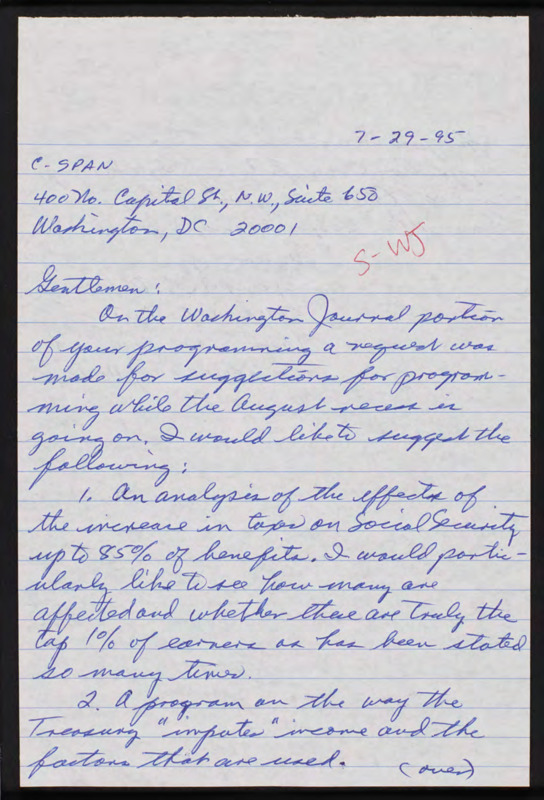 7-29-95
C-SPAN
400 No. Capital St., N.W., Suite 650
Washington, DC 20001
S-WJ
Gentlemen:
On the Washington Journal portion
of your programming a request was
made for suggestions for program-
ming while the August recess is
going on. I would like to suggest the
following:
1. An analysis of the effects of
the increase in taxes on Social Security
up to 85% of benefits. I would partic-
ularly like to see how many are
affected and whether these are truly the
top 1% of earners as has been stated
so many times.
2. A program on the way the
Treasury "imputes" income and the
factors that are used.
(over)